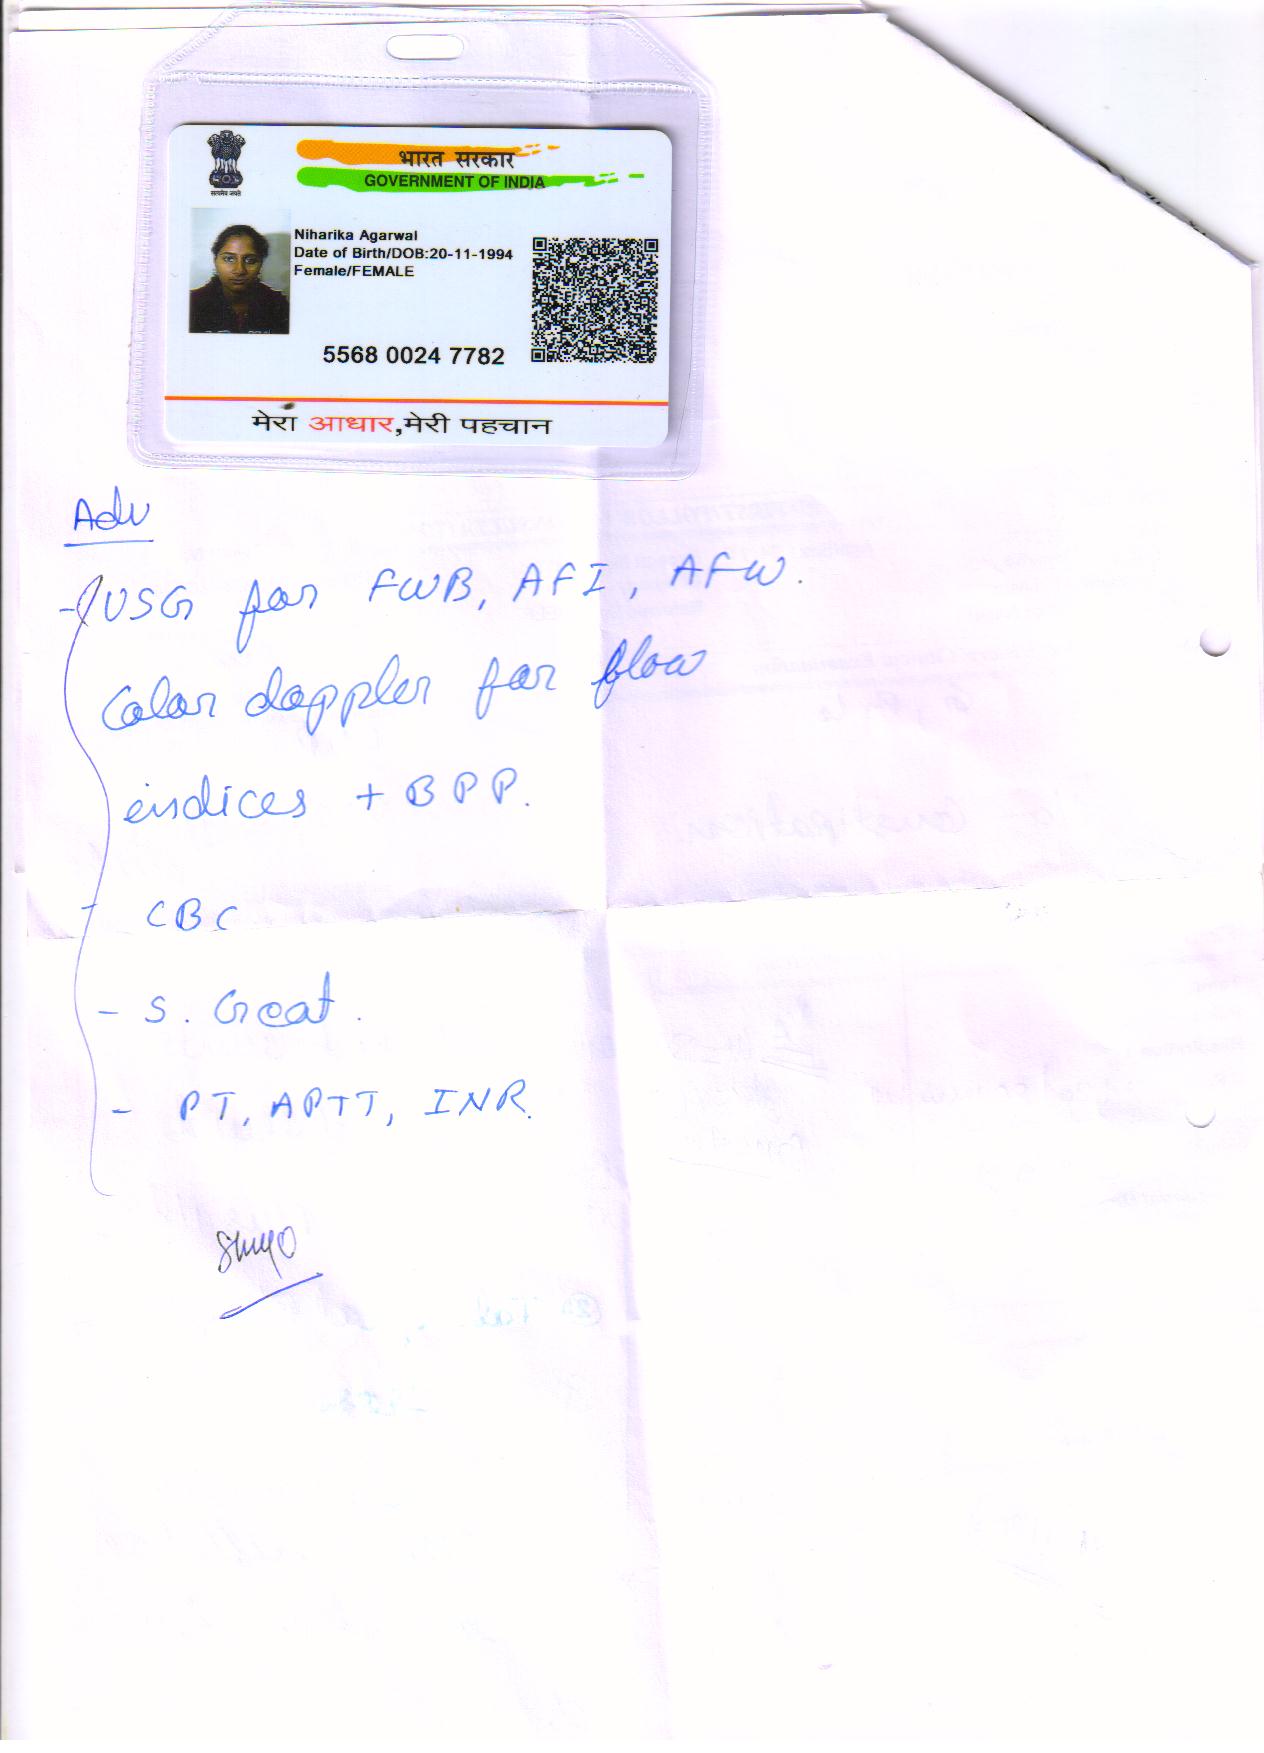 सत्यमेव जयते
भारत सरकार
GOVERNMENT OF INDIA
Niharika Agarwal
Date of Birth/DOB:20-11-1994
Female/FEMALE
5568 0024 7782
मेरा आधार,मेरी पहचान
Adv
- USG for FWB, AFI, AFW.
Color doppler for flow
indices + BPP.
- CBC
- S. Creat.
- PT, APTT, INR.